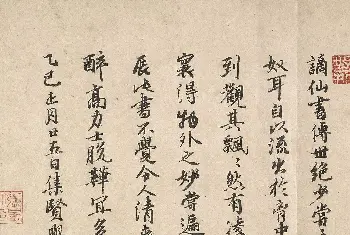 謫仙書傳世絕少嘗
奴耳自以流出於胷中
到觀其飄飄然有凌
寰得物外之妙嘗遍
展此書不覺令人清
醉高力士脫鞾宜
乙巳正月廿五日集賢